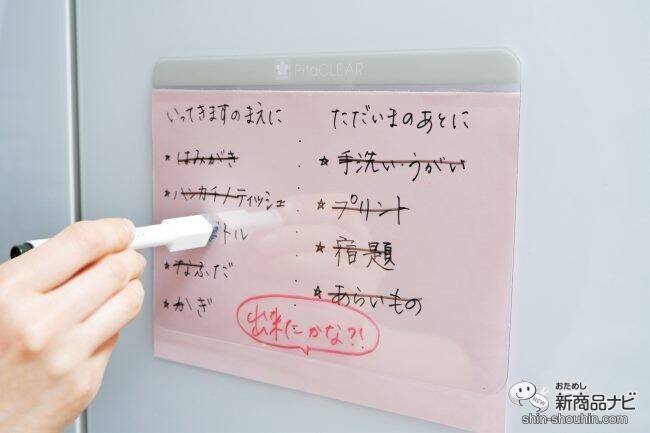 PitaCLEAR
いってきますのまえに
★はみがき
★ハンカチ/ティッシュ
トル
★なふだ
★かぎ
ただいまのあとに
☆手洗い・うがい
★プリント
★宿題
★あらいもの
出来たかな?!
おためし
新商品ナビ
NEW
shin-shouhin.com